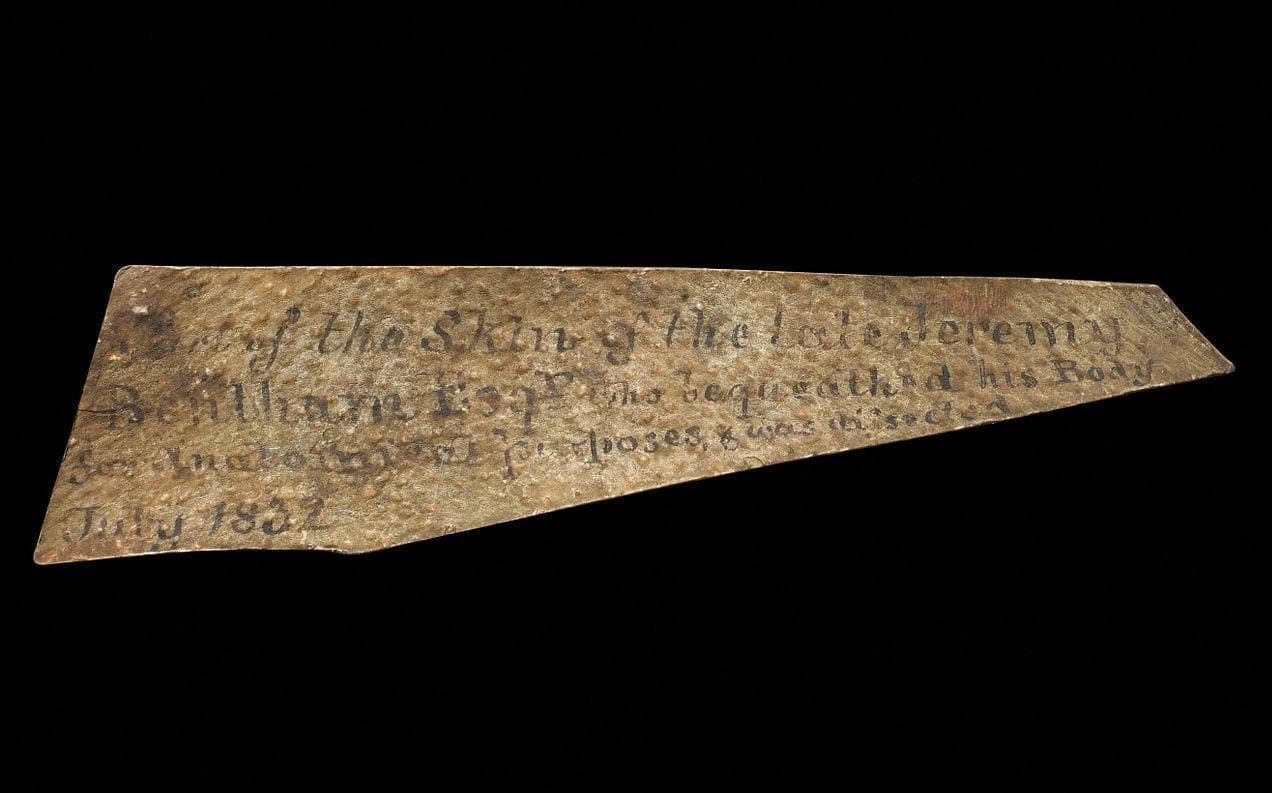 Part of the Skin of the late Jeremy
Bentham Esqr who bequeathed his Body
for Anatomical purposes, & was dissected
July 1832